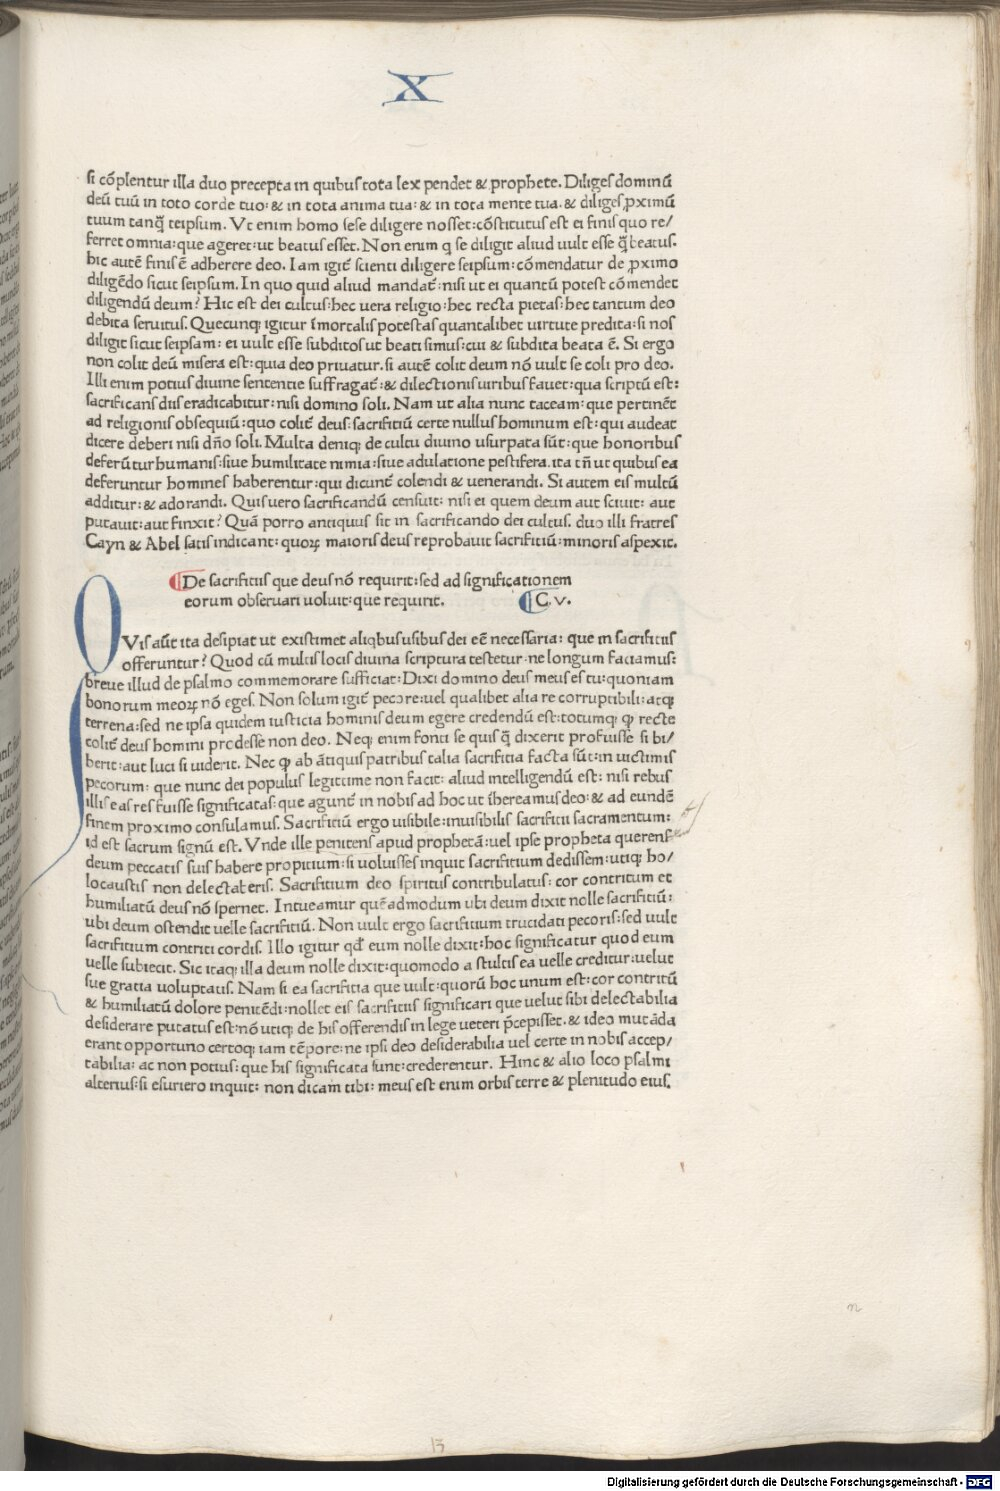 X
si cõplentur illa duo precepta in quibus tota lex pendet & prophete. Diliges dominũ
deũ tuũ in toto corde tuo: & in tota anima tua: & in tota mente tua. & diliges ꝓximũ
tuum tanq̃ teipsum. Vt enim homo sese diligere nosset: cõstitutus est ei finis quo re/
ferret omnia: que ageret: ut beatus esset. Non enim q se diligit aliud uult esse q̃ beatus.
hic autẽ finis ẽ adherere deo. Iam igit̃ scienti diligere seipsum: cõmendatur de ꝓximo
diligẽdo sicut seipsum. In quo quid aliud mandat̃: nisi ut ei quantũ potest cõmendet
diligendũ deum? Hic est dei cultus: hec uera religio: hec recta pietas: hec tantum deo
debita seruitus. Quecunq; igitur ĩmortalis potestas quantalibet uirtute predita: si nos
diligit sicut seipsam: ei uult esse subditos ut beati simus: cui & subdita beata ẽ. Si ergo
non colit deũ misera est: quia deo priuatur. si autẽ colit deum nõ uult se coli pro deo.
Illi enim potius diuine sententie suffragat̃: & dilectionis uiribus fauet: qua scriptũ est:
sacrificans diis eradicabitur: nisi domino soli. Nam ut alia nunc taceam: que pertinẽt
ad religionis obsequiũ: quo colit̃ deus: sacrifitiũ certe nullus hominum est: qui audeat
dicere deberi nisi dño soli. Multa deniq; de cultu diuino usurpata sũt: que honoribus
deferũtur humanis: siue humilitate nimia: siue adulatione pestifera. ita tñ ut quibus ea
deferuntur homines haberentur: qui dicunt̃ colendi & uenerandi. Si autem eis multũ
additur: & adorandi. Quis uero sacrificandũ censuit: nisi ei quem deum aut sciuit: aut
putauit: aut finxit? Quã porro antiquus sit in sacrificando dei cultus. duo illi fratres
Cayn & Abel satis indicant: quoꝝ maioris deus reprobauit sacrifitiũ: minoris aspexit.
De sacrifitiis que deus nõ requirit: sed ad significationem
eorum obseruari uoluit: que requirit. C. v.
QVis aũt ita desipiat ut existimet aliqbus usibus dei eẽ necessaria: que in sacrifitiis
offeruntur? Quod cũ multis locis diuina scriptura testetur. ne longum faciamus:
breue illud de psalmo commemorare sufficiat: Dixi domino deus meus es tu: quoniam
bonorum meoꝝ nõ eges. Non solum igit̃ pecore: uel qualibet alia re corruptibili: atq;
terrena: sed ne ipsa quidem iusticia hominis deum egere credendũ est: totumq; ꝙ recte
colit̃ deus homini prodesse non deo. Neq; enim fonti se quis q̃ dixerit profuisse si bi/
berit: aut luci si uiderit. Nec ꝙ ab ãtiquis patribus talia sacrifitia facta sũt: in uictimis
pecorum: que nunc dei populus legit: ne non facit: aliud intelligendũ est: nisi rebus
illis eas res fuisse significatas: que agunt̃ in nobis ad hoc ut ĩhereamus deo: & ad eundẽ
finem proximo consulamus. Sacrifitiũ ergo uisibile: inuisibilis sacrifitii sacramentum:
id est sacrum signũ est. Vnde ille penitens apud prophetã: uel ipse propheta querens
deum peccatis suis habere propitium: si uoluisses inquit sacrifitium dedissem: utiq; ho/
locaustis non delectaberis. Sacrifitium deo spiritus contribulatus: cor contritum et
humiliatũ deus nõ spernet. Intueamur quẽadmodum ubi deum dixit nolle sacrifitiũ:
ubi deum ostendit uelle sacrifitiũ. Non uult ergo sacrifitium trucidati pecoris: sed uult
sacrifitium contriti cordis. Illo igitur qđ eum nolle dixit: hoc significatur quod eum
uelle subiecit. Sic itaq; illa deum nolle dixit: quomodo a stultis ea uelle creditur: uelut
sue gratia uoluptatis. Nam si ea sacrifitia que uult: quorũ hoc unum est: cor contritũ
& humiliatũ dolore penitẽdi: nollet eis sacrifitiis significari que uelut sibi delectabilia
desiderare putatus est: nõ utiq; de his offerendis in lege ueteri p̃cepisset. & ideo mutãda
erant opportuno certoq; iam tẽpore: ne ipsi deo desiderabilia uel certe in nobis accep/
tabilia: ac non potius: que his significata sunt: crederentur. Hinc & alio loco psalmi
alterius: si esuriero inquit: non dicam tibi: meus est enim orbis terre & plenitudo eius.
n
13
Digitalisierung gefördert durch die Deutsche Forschungsgemeinschaft - DFG